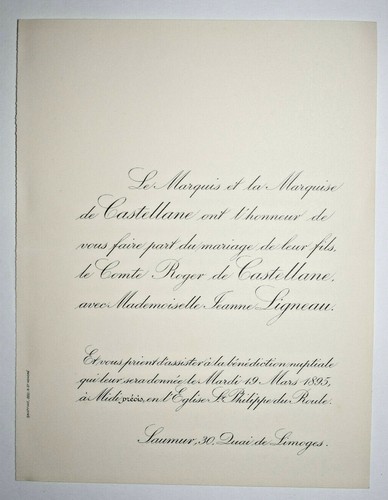 Le Marquis et la Marquise
de Castellane ont l'honneur de
vous faire part du mariage de leur fils,
le Comte Roger de Castellane,
avec Mademoiselle Jeanne Ligneau.
Et vous prient d'assister à la bénédiction nuptiale
qui leur sera donnée, le Mardi 19 Mars 1895,
à Midi, précis, en l'Eglise St Philippe du Roule.
Saumur, 30, Quai de Limoges.